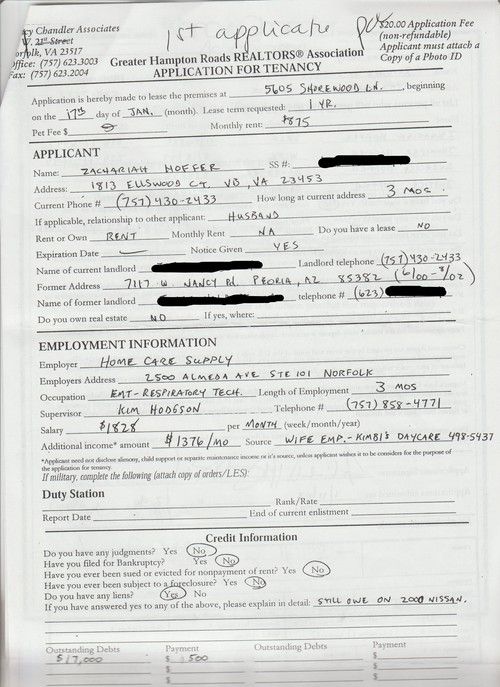 1st applicate
y Chandler Associates
. 21st Street
orfolk, VA 23517
Office: (757) 623.3003
Fax: (757) 623.2004
$20.00 Application Fee
(non-refundable)
Applicant must attach a
Copy of a Photo ID
Greater Hampton Roads REALTORS® Association
APPLICATION FOR TENANCY
Application is hereby made to lease the premises at 5605 SHOREWOOD LN. , beginning
on the 17th day of JAN. (month). Lease term requested: 1 YR.
Pet Fee $ Monthly rent: $875
APPLICANT
Name: ZACHARIAH HOFFER SS #:
Address: 1813 ELLSWOOD CT, VB, VA 23453
Current Phone # (757) 430-2433 How long at current address 3 MOS.
If applicable, relationship to other applicant: HUSBAND
Rent or Own RENT Monthly Rent NA Do you have a lease NO
Expiration Date Notice Given YES
Name of current landlord Landlord telephone (757) 430-2433
Former Address 7117 W. NANCY Rd. PEORIA, AZ 85382 (6/00-8/02)
Name of former landlord telephone # (623)
Do you own real estate NO If yes, where:
EMPLOYMENT INFORMATION
Employer HOME CARE SUPPLY
Employers Address 2500 ALMEDA AVE STE 101 NORFOLK
Occupation EMT-RESPIRATORY TECH. Length of Employment 3 MOS
Supervisor KIM HODGSON Telephone # (757) 858-4771
Salary $1828 per MONTH (week/month/year)
Additional income* amount $1376/MO Source WIFE EMP.-KIMBI'S DAYCARE 498-5437
*Applicant need not disclose alimony, child support or separate maintenance income or it's source, unless applicant wishes it to be considered for the purpose of
the application for tenancy.
If military, complete the following (attach copy of orders/LES):
Duty Station
Rank/Rate
Report Date End of current enlistment
Credit Information
Do you have any judgments? Yes No
Have you filed for Bankruptcy? Yes No
Have you ever been sued or evicted for nonpayment of rent? Yes No
Have you ever been subject to a foreclosure? Yes No
Do you have any liens? Yes No
If you have answered yes to any of the above, please explain in detail: STILL OWE ON 2000 NISSAN.
Outstanding Debts Payment Outstanding Debts Payment
$17,000 $ 500 $
$ $
$ $